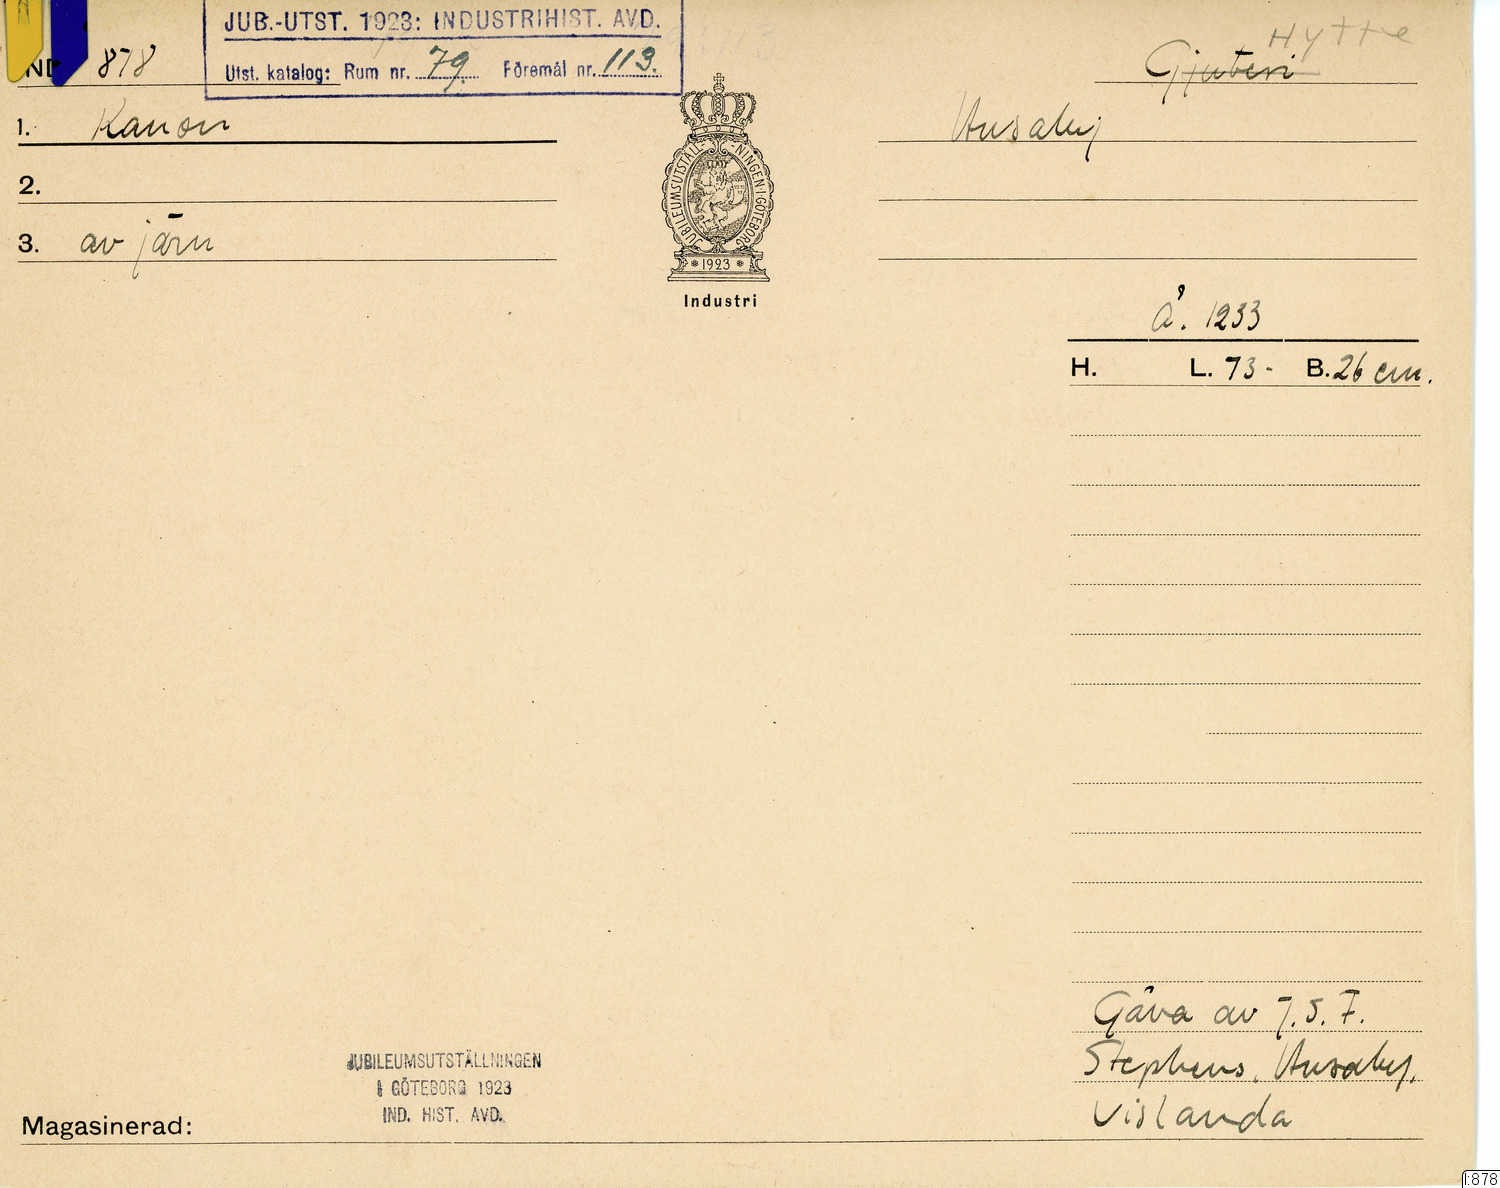 JUB.-UTST. 1923: INDUSTRIHIST. AVD.
Utst. katalog: Rum nr. 79. Föremål nr. 113.
IND 878
Hytte
Gjuteri
1. Kanon
Husaby
2.
3. av järn
JUBILEUMSUTSTÄLL-NINGEN·I·GÖTEBORG
1923
Industri
Å. 1233
H. L. 73 - B. 26 cm.
Gåva av J. S. F.
Stephens, Husaby,
Vislanda
JUBILEUMSUTSTÄLLNINGEN
I GÖTEBORG 1923
IND. HIST. AVD.
Magasinerad:
I:878